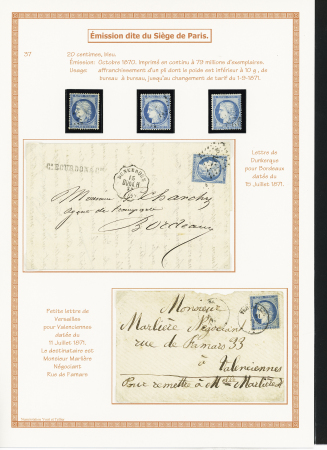 Émission dite du Siège de Paris.
37
20 centimes, bleu.
Émission: Octobre 1870. Imprimé en continu à 79 millions d'exemplaires.
Usage: affranchissement d'un pli dont le poids est inférieur à 10 g, de
bureau à bureau, jusqu'au changement de tarif du 1-9-1871.
Lettre de
Dunkerque
pour Bordeaux
datée du
15 Juillet 1871.
DUNKERQUE
Monsieur Chanchy
Agent de
Bordeaux
Petite lettre de
Versailles
pour Valenciennes
datée du
11 Juillet 1871.
Le destinataire est
Monsieur Marlière
Négociant
Rue de Famars
Monsieur
Marlière Négociant
rue de Famars 33
à Valenciennes
Pour remettre à Marlière